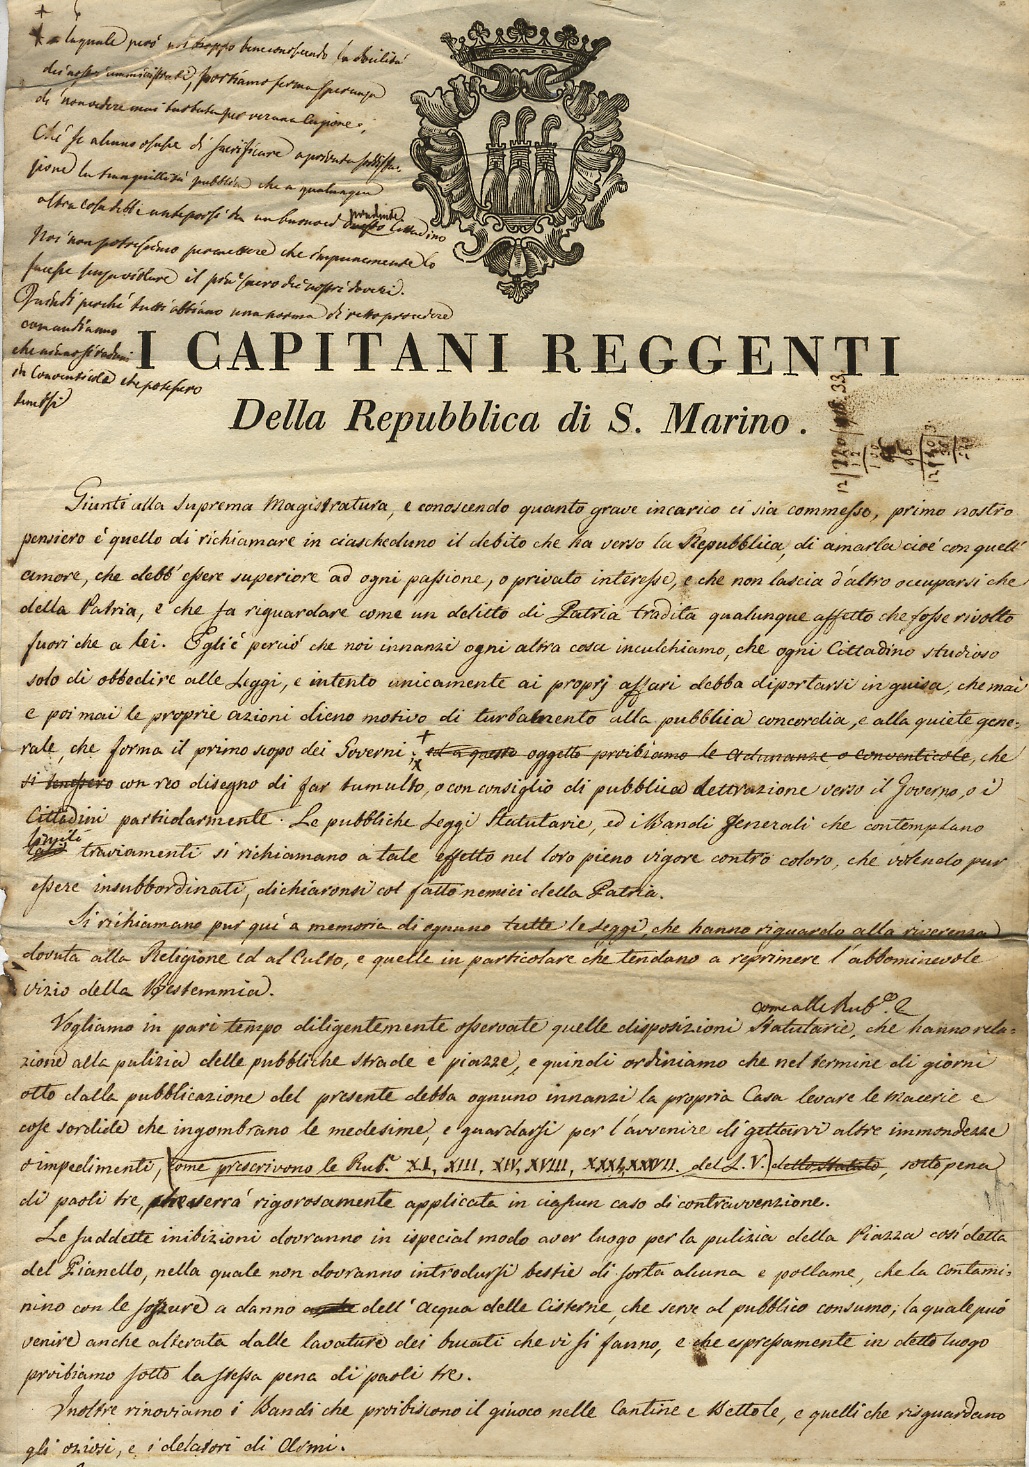 la quale però noi troppo bene conoscendo la docilità
dei nostri amministrati, portiamo ferma speranza
di non vedere mai turbata per veruna cagione;
Che se alcuno osasse di sacrificare a privata soddisfa-
zione la tranquillità pubblica che a qualunque
altra cosa debbe anteporsi da un buono ed onesto prudente Cittadino
Noi non potressimo permettere che impunemente lo
facesse senza violare il più sacro dei nostri doveri.
Quindi perchè tutti abbiano una norma di retto procedere
comandiamo
che niuno si raduni
in Conventicola che potessero
tenersi
I CAPITANI REGGENTI
Della Repubblica di S. Marino.
Giunti alla Suprema Magistratura, e conoscendo quanto grave incarico ci sia commesso, primo nostro
pensiero è quello di richiamare in ciascheduno il debito che ha verso la Repubblica, di amarla cioè con quell'
amore, che debb' essere superiore ad ogni passione, o privato interesse, e che non lascia d'altro occuparsi che
della Patria, e che fa riguardare come un delitto di Patria tradita qualunque affetto che fosse rivolto
fuori che a lei. Egli è perciò che noi innanzi ogni altra cosa inculchiamo, che ogni Cittadino studioso
solo di obbedire alle Leggi, e intento unicamente ai proprj affari debba diportarsi in guisa, che mai
e poi mai le proprie azioni dieno motivo di turbamento alla pubblica concordia, e alla quiete gene-
rale, che forma il primo scopo dei Governi; ed a questo oggetto proibiamo le Adunanze, o Conventicole, che
si tenessero con reo disegno di far tumulto, o con consiglio di pubblica detrazione verso il Governo, o i
Cittadini particolarmente. Le pubbliche Leggi Statutarie, ed i Bandi Generali che contemplano
simili traviamenti si richiamano a tale effetto nel loro pieno vigore contro coloro, che volendo pur
essere insubbordinati, dichiaronsi col fatto nemici della Patria.
Si richiamano pur quì a memoria di ognuno tutte le Leggi, che hanno riguardo alla riverenza
dovuta alla Religione ed al Culto, e quelle in particolare che tendano a reprimere l'abbominevole
vizio della Bestemmia.
come alle Rub.
Vogliamo in pari tempo diligentemente osservate quelle disposizioni Statutarie, che hanno rela-
zione alla pulizia delle pubbliche strade e piazze, e quindi ordiniamo che nel termine di giorni
otto dalla pubblicazione del presente debba ognuno innanzi la propria Casa levare le macerie e
cose sordide che ingombrano le medesime, e guardarsi per l'avvenire di gettarvi altre immondezze
o impedimenti, come prescrivono le Rub. XI, XIII, XIV, XVIII, XXXI, XXXVII. del L. V. dello Statuto, sotto pena
di paoli tre, che verrà rigorosamente applicata in ciascun caso di contravvenzione.
Le suddette inibizioni dovranno in ispecial modo aver luogo per la pulizia della Piazza così detta
del Pianello, nella quale non dovranno introdursi bestie di sorta alcuna e pollame, che la contami-
nino con le sozzure a danno dell' Acqua delle Cisterne, che serve al pubblico consumo; la quale può
venire anche alterata dalle lavature dei bucati che vi si fanno, e che espressamente in detto luogo
proibiamo sotto la stessa pena di paoli tre.
Inoltre rinoviamo i Bandi che proibiscono il giuoco nelle Cantine e Bettole, e quelli che risguardano
gli oziosi, e i delatori di Armi.